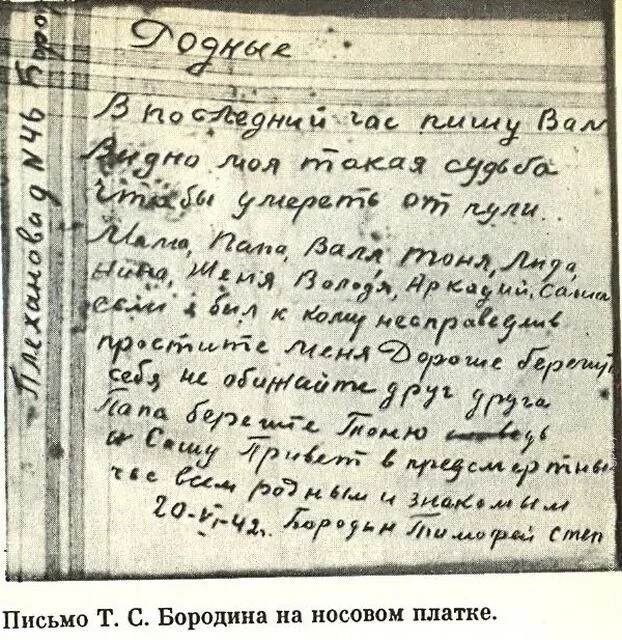 Родные
В последний час пишу Вам
Видно моя такая судьба
чтобы умереть от пули.
Мама, Папа, Валя Тоня, Лида,
Нина, Женя Володя, Аркадий, Саша
если я был к кому несправедлив
простите меня Дорогие берегит
себя не обижайте друг друга
Папа берегите Тоню
и Сашу Привет в предсмертны
час всем родным и знакомым
20-VI-42г. Бородин Тимофей Степ
Плеханова д N 46 Боро
Письмо Т. С. Бородина на носовом платке.